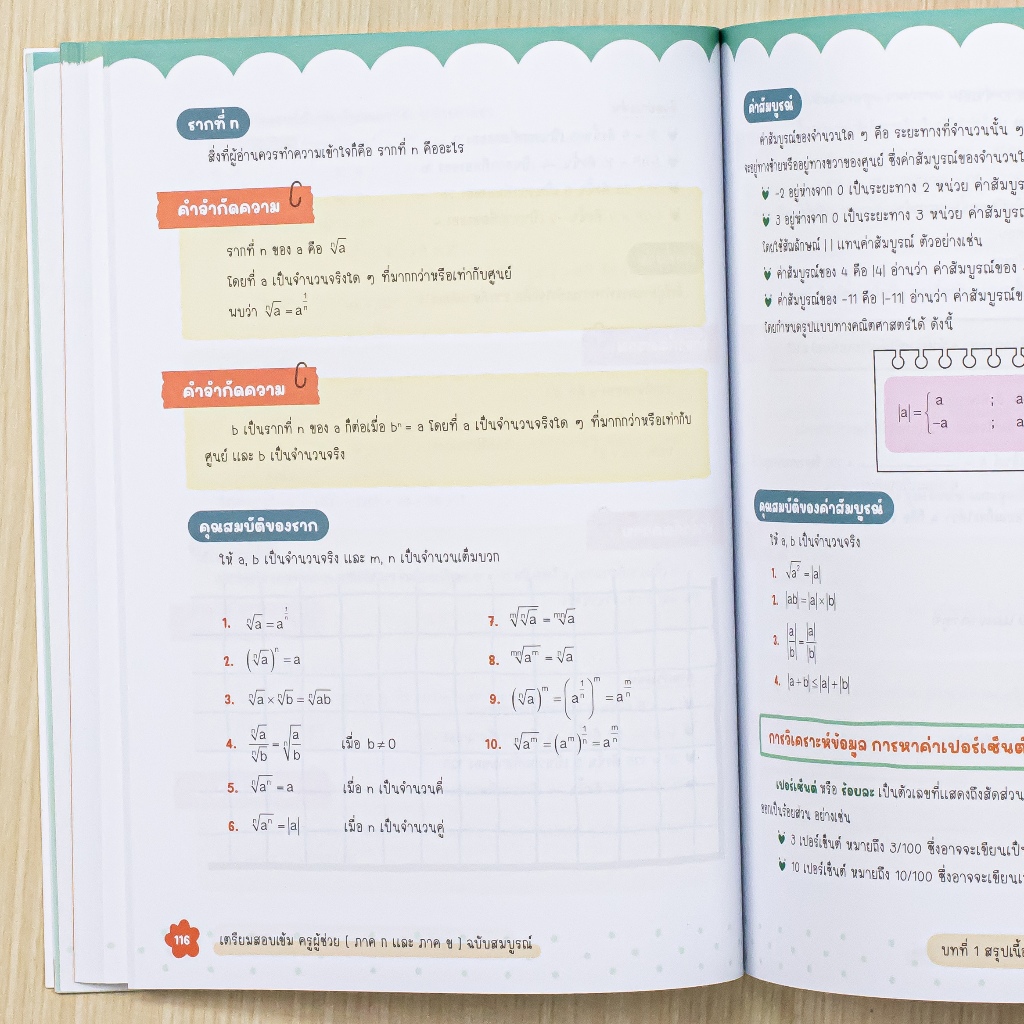 รากที่ n
สิ่งที่ผู้อ่านควรทำความเข้าใจก็คือ รากที่ n คืออะไร
คำจำกัดความ
รากที่ n ของ a คือ ⁿ√a
โดยที่ a เป็นจำนวนจริงใด ๆ ที่มากกว่าหรือเท่ากับศูนย์
พบว่า ⁿ√a = a^(1/n)
คำจำกัดความ
b เป็นรากที่ n ของ a ก็ต่อเมื่อ bⁿ = a โดยที่ a เป็นจำนวนจริงใด ๆ ที่มากกว่าหรือเท่ากับ
ศูนย์ และ b เป็นจำนวนจริง
คุณสมบัติของราก
ให้ a, b เป็นจำนวนจริง และ m, n เป็นจำนวนเต็มบวก
1. ⁿ√a = a^(1/n)
2. (ⁿ√a)ⁿ = a
3. ⁿ√a × ⁿ√b = ⁿ√ab
4. ⁿ√a / ⁿ√b = ⁿ√(a/b) เมื่อ b ≠ 0
5. ⁿ√aⁿ = a เมื่อ n เป็นจำนวนคี่
6. ⁿ√aⁿ = |a| เมื่อ n เป็นจำนวนคู่
7. ᵐ√ⁿ√a = ᵐⁿ√a
8. ᵐⁿ√aᵐ = ⁿ√a
9. (ⁿ√a)ᵐ = (a^(1/n))^m = a^(m/n)
10. ⁿ√aᵐ = (aᵐ)^(1/n) = a^(m/n)
116 เตรียมสอบเข้ม ครูผู้ช่วย ( ภาค ก และ ภาค ข ) ฉบับสมบูรณ์
ค่าสัมบูรณ์
ค่าสัมบูรณ์ของจำนวนใด ๆ คือ ระยะทางที่จำนวนนั้น ๆ
จะอยู่ทางซ้ายหรืออยู่ทางขวาของศูนย์ ซึ่งค่าสัมบูรณ์ของจำนวน
-2 อยู่ห่างจาก 0 เป็นระยะทาง 2 หน่วย
3 อยู่ห่างจาก 0 เป็นระยะทาง 3 หน่วย
โดยใช้สัญลักษณ์ | | แทนค่าสัมบูรณ์ ตัวอย่างเช่น
ค่าสัมบูรณ์ของ 4 คือ |4| อ่านว่า ค่าสัมบูรณ์ของ
ค่าสัมบูรณ์ของ -11 คือ |-11| อ่านว่า
โดยกำหนดรูปแบบทางคณิตศาสตร์ได้ ดังนี้
|a| = { a ; a
-a ; a
คุณสมบัติของค่าสัมบูรณ์
ให้ a, b เป็นจำนวนจริง
1. √a² = |a|
2. |ab| = |a| × |b|
3. |a/b| = |a|/|b|
4. |a + b| ≤ |a| + |b|
การวิเคราะห์ข้อมูล การหาค่าเปอร์เซ็นต์
เปอร์เซ็นต์ หรือ ร้อยละ เป็นตัวเลขที่แสดงถึงสัดส่วน
ออกเป็นร้อยส่วน อย่างเช่น
3 เปอร์เซ็นต์ หมายถึง 3/100 ซึ่งอาจจะเขียน
10 เปอร์เซ็นต์ หมายถึง 10/100 ซึ่งอาจจะเขียน
บทที่ 1